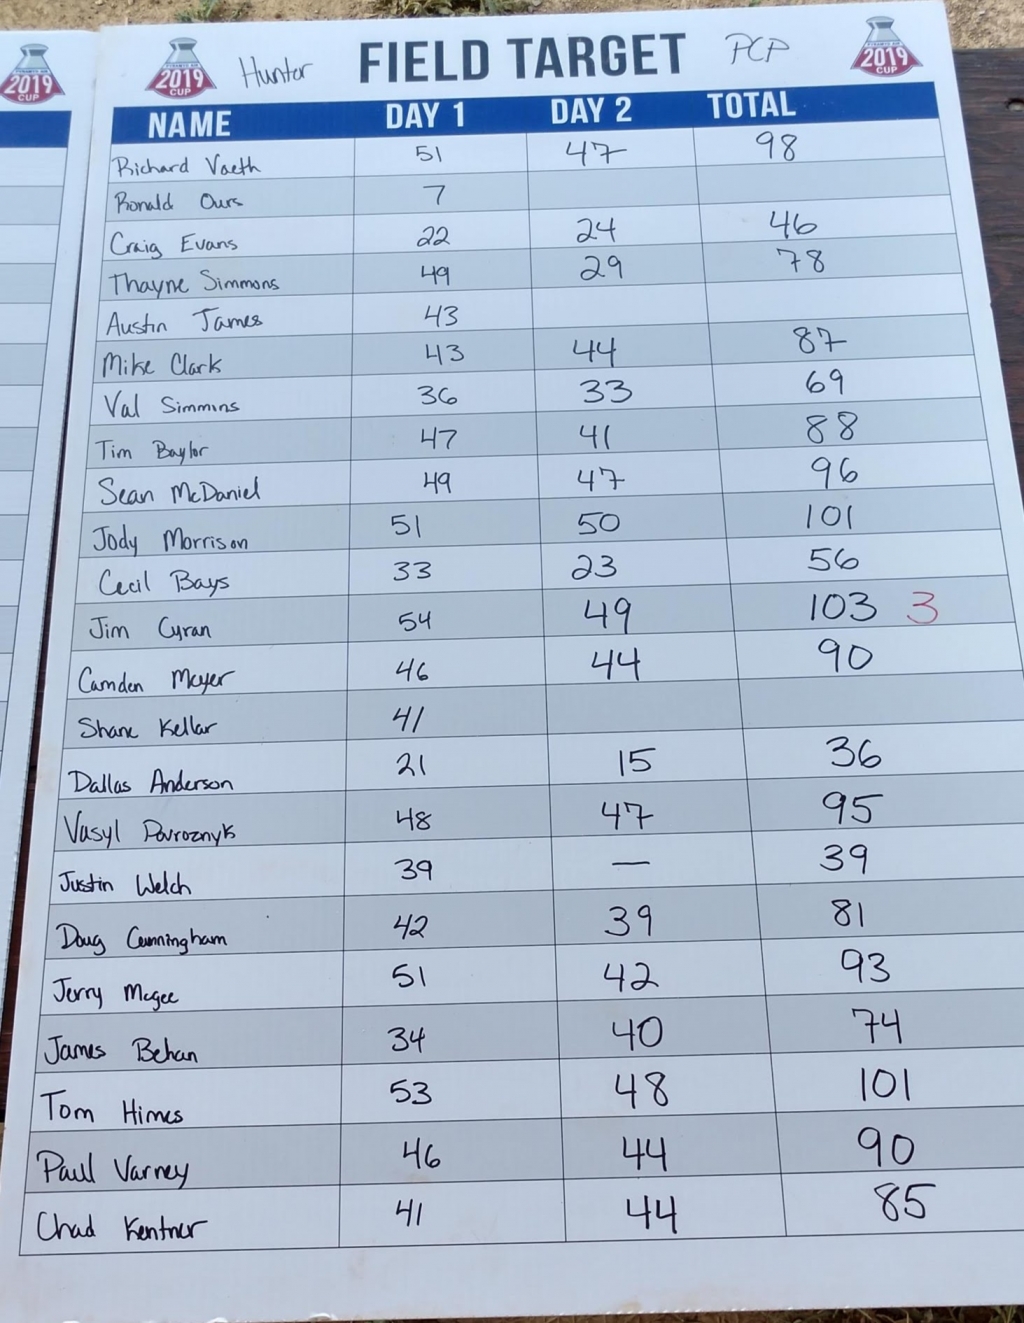 2019
CUP
2019
CUP
Hunter FIELD TARGET PCP
2019
CUP
NAME DAY 1 DAY 2 TOTAL
Richard Vaeth 51 47 98
Ronald Ours 7
Craig Evans 22 24 46
Thayne Simmons 49 29 78
Austin James 43
Mike Clark 43 44 87
Val Simmins 36 33 69
Tim Baylor 47 41 88
Sean McDaniel 49 47 96
Jody Morrison 51 50 101
Cecil Bays 33 23 56
Jim Cyran 54 49 103 3
Camden Meyer 46 44 90
Shane Kellar 41
Dallas Anderson 21 15 36
Vasyl Povroznyk 48 47 95
Justin Welch 39 — 39
Doug Cunningham 42 39 81
Jerry Mcgee 51 42 93
James Behan 34 40 74
Tom Himes 53 48 101
Paul Varney 46 44 90
Chad Kentner 41 44 85